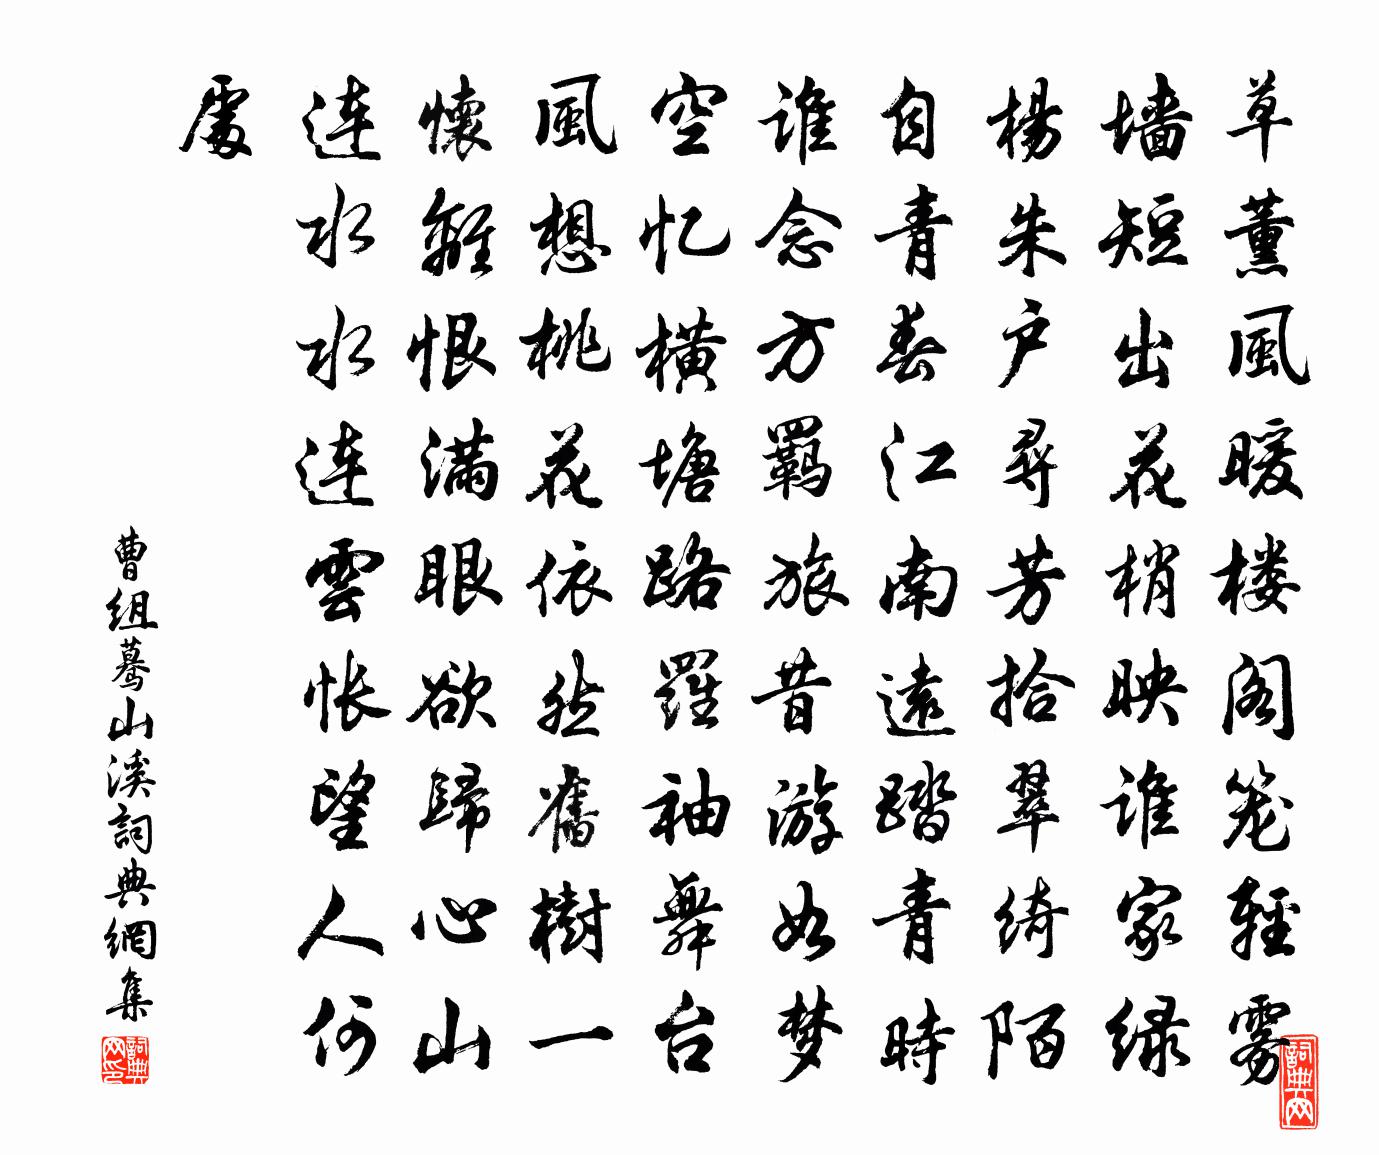 草薰風暖楼阁笼輕雾
墙短出花梢映谁家绿
楊朱户尋芳拾翠绮陌
自青春江南遠踏青時
谁念方羁旅昔游如梦
空忆横塘路羅袖舞台
風想桃花依然舊樹一
懷離恨满眼欲歸心山
连水水连雲怅望人何
處
曹组蓦山溪詞典網集
詞典网印
詞典网